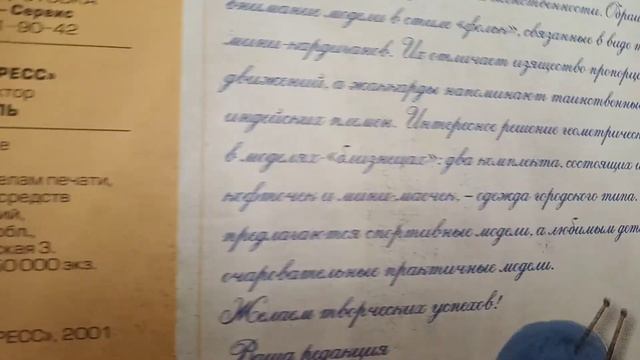 Сервис
1-90-42
РЕСС»
ктор
ЛЬ
е
елам печати,
средств
ий,
обл.,
ская 3.
50 000 экз.
РЕСС», 2001
внимание модели в стиле «фольк», связанные в виде
мини-кардиганов. Их отличает изящество пропорц
движений, а жаккарды напоминают таинственные
индейских племен. Интересное решение геометричес
в моделях-«близнецах»: два комплекта, состоящих
кофточек и мини-маечек, – одежда городского типа.
предлагаются спортивные модели, а любимым
очаровательные практичные модели.
Желаем творческих успехов!
Ваша редакция